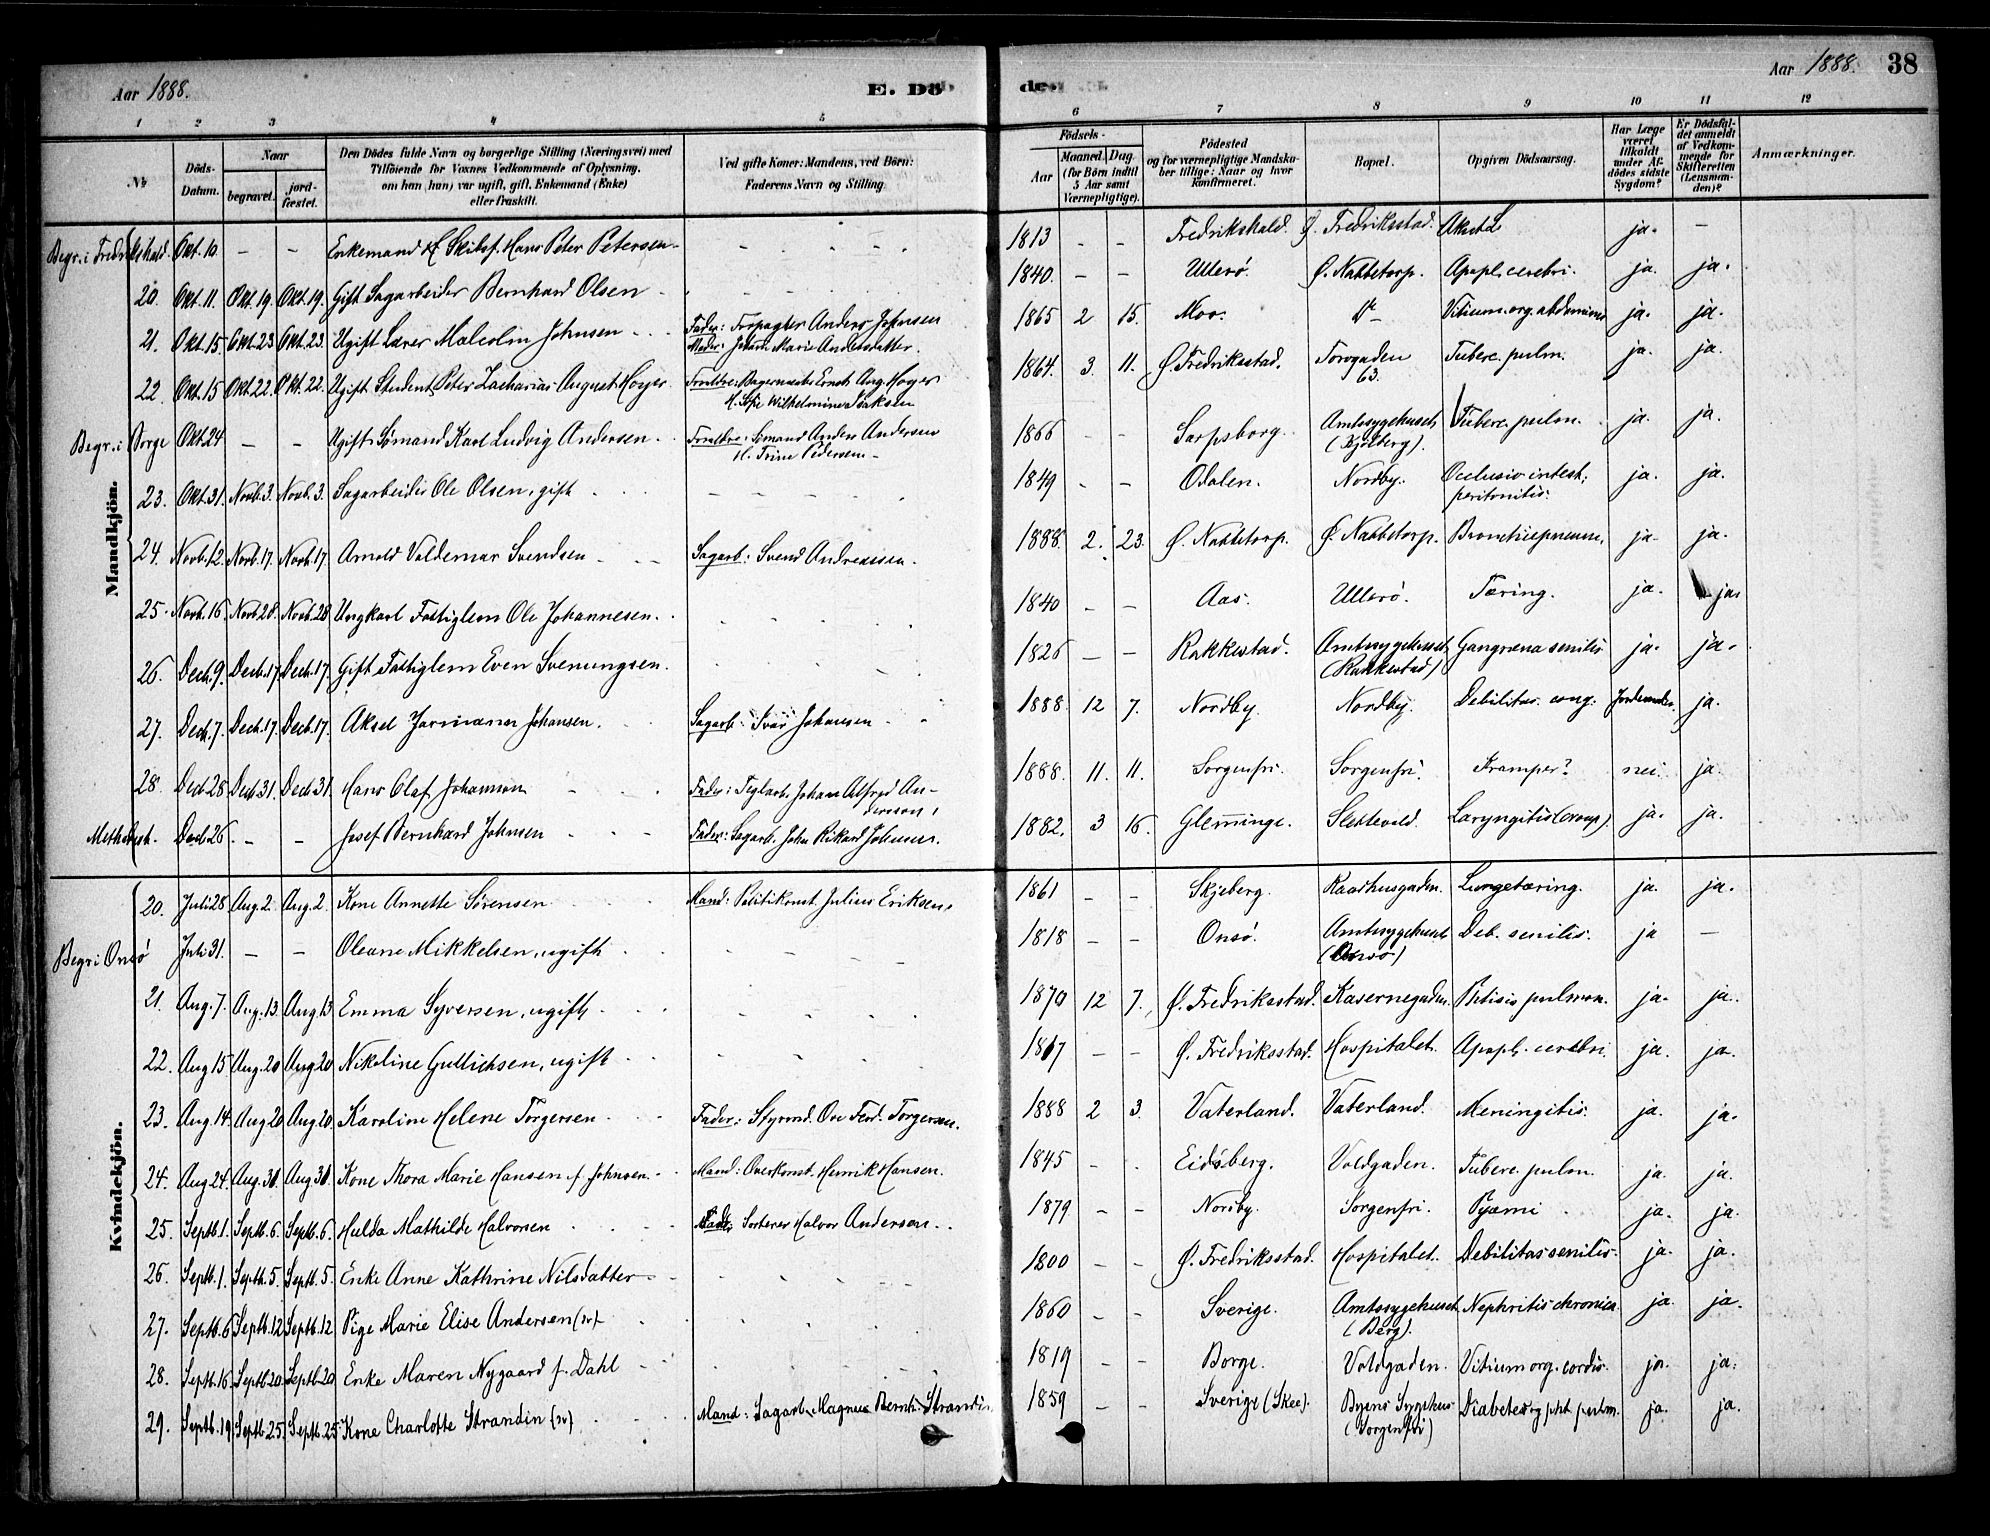 Aar 1888. E. Dö
de. Aar 1888. 38
1 2 3 4 5 6 7 8 9 10 11 12
No. Döds-Datum. Naar begravet. jordfæstet. Den Dödes fulde Navn og borgerlige Stilling (Næringsvei) med Tilföiende for Voxnes Vedkommende af Oplysning, om han (hun) var ugift, gift, Enkemand (Enke) eller fraskilt. Ved gifte Koner: Mandens, ved Börn: Faderens Navn og Stilling.
Födsels- Aar Maaned. Dag. (for Börn indtil 5 Aar samt Værnepligtige). Födested og for værnepligtige Mandskaber tillige: Naar og hvor Konfirmeret. Bopæl. Opgiven Dödsaarsag. Har Læge været tilkaldt under Afdödes sidste Sygdom? Er Dödsfaldet anmeldt af Vedkommende for Skifteretten (Lensmanden)? Anmærkninger.
Mandkjön.
Begr. i Fredrikshald. Okt. 10. – – Enkemand Skibsf. Hans Peter Petersen 1813 – – Fredrikshald. Ø. Fredriksstad. ja. –
20. Okt. 11. Okt. 19. Okt. 19. Gift Sagarbeider Bernhard Olsen 1840. – – Ullerø. Ø. Nabbetorp. Apopl. cerebri. ja. ja.
21. Okt. 15. Okt. 23 Okt. 23. Ugift Lærer Malcolm Johnsen Fader: Forpagter Anders Johnsen 1865 2 15. Moss. Do Vitium org. abdominis ja. ja.
Moder: Johan. Marie Andersdatter.
22. Okt. 15 Okt. 22. Okt. 22. Ugift Student Peter Zacharias August Hoyer Forældre: Bagermester Ernst Aug. Hoyer 1864. 3. 11. Ø. Fredriksstad. Torvgaden 63. Tuberc. pulm. ja. ja.
H. Sofie Wilhelmine Isaksen
Begr. i Borge Okt. 24 – – Ugift Sømand Karl Ludvig Andersen Forældre: Sømand Anders Andersen 1866 – – Sarpsborg. Amtssygehuset (Kjølberg). Tuberc. pulm. ja. ja.
H. Trine Pedersen
23. Okt. 31. Novb. 3. Novb. 3. Sagarbeider Ole Olsen, gift 1849 – – Odalen. Nordby. Occlusio intest; peritonitis. ja. ja.
24. Novb. 12. Novb. 17. Novb. 17. Arnold Valdemar Svendsen Sagarb: Svend Andreassen. 1888. 2. 23. Ø. Nabbetorp. Ø. Nabbetorp. Bronchiepneum. ja. ja.
25. Novb. 16. Novb. 28. Novb. 28 Ungkarl Fattiglem Ole Johannesen. 1840 – – Aas. Ullerø. Tæring. ja. ja.
26. Decb. 9. Decb. 17. Decb. 17. Gift Fattiglem Even Svenungsen. 1826 – – Rakkestad. Amtssygehuset (Rakkestad) Gangræna senilis ja. ja.
27. Decb. 7. Decb. 17. Decb. 17. Aksel Johansen. Sagarb: Ivar Johansen 1888. 12 7. Nordby. Nordby. Debilitas cong. Jordemoder. ja.
28. Decb 28 Decb 31. Decb 31. Hans Olaf Johannson Fader: Teglarb. Johan Alfred Andersson. 1888. 11. 11. Sorgenfri. Sorgenfri. Kramper? nei. ja.
Methodist. Decb 26. – – Josef Bernhard Johnsen Fader: Sagarb. John Rikard Johnsen. 1882. 3 16. Glemminge. Slettevold. Laryngitis (croup). ja. ja.
Kvindekjön.
20. Juli 28 Aug. 2. Aug. 2. Kone Annette Sørensen Mand: Politikonst. Julius Eriksen. 1861 – – Skjeberg. Raadhusgaden. Lungetæring. ja. ja.
Begr. i Onsø Juli 31. – – Oleane Mikkelsen, ugift 1818 – – Onsø. Amtssygehuset (Onsø) Deb. senilis. ja –
21. Aug. 7. Aug. 13. Aug. 13 Emma Syversen, ugift 1870 12 7. Ø. Fredriksstad. Kasernegaden. Phtisis pulmon. ja. ja.
22. Aug 15 Aug. 20 Aug 20 Nikoline Gullichsen, ugift 1817 – – Ø. Fredriksstad. Hospitalet. Apopl. cerebri. ja. ja.
23. Aug. 14. Aug 20 Aug 20. Karoline Helene Torgersen Fader: Styrmd. Ove Ferd. Torgersen. 1888 2 3. Vaterland. Vaterland. Meningitis. ja. ja.
24. Aug 24. Aug. 31. Aug 31. Kone Thora Marie Hansen f. Johnsen. Mand: Overkonst. Henrik Hansen. 1845 – – Eidsberg. Voldgaden. Tuberc. pulm. ja. ja.
25. Septb. 1. Septb. 6. Septb. 6. Hulda Mathilde Halvorsen Fader: Sorterer Halvor Andersen. 1879 – – Nordby. Sorgenfri. Pyæmi ja. ja.
26. Septb. 1. Septb. 5. Septb. 5. Enke Anne Kathrine Nilsdatter 1800 – – Ø. Fredriksstad. Hospitalet. Debilitas senilis. ja. ja.
27. Septb. 6 Septb. 12 Septb. 12 Pige Marie Elise Andersen (sv). 1860 – – Sverige. Amtssygehuset (Berg). Nephritis chronica. ja. ja.
28. Septb. 16. Septb 20. Septb 20 Enke Maren Nygaard f. Dahl 1819 – – Borge. Voldgaden. Vitium org. cordis. ja. ja.
29. Septb. 19. Septb. 25. Septb. 25. Kone Charlotte Strandin (sv) Mand: Sagarb. Magnus Bernh. Strandin 1859 – – Sverige (Skee). Byens Sygehus (Sorgenfri) Diabetes og pht. pulm. ja. ja.